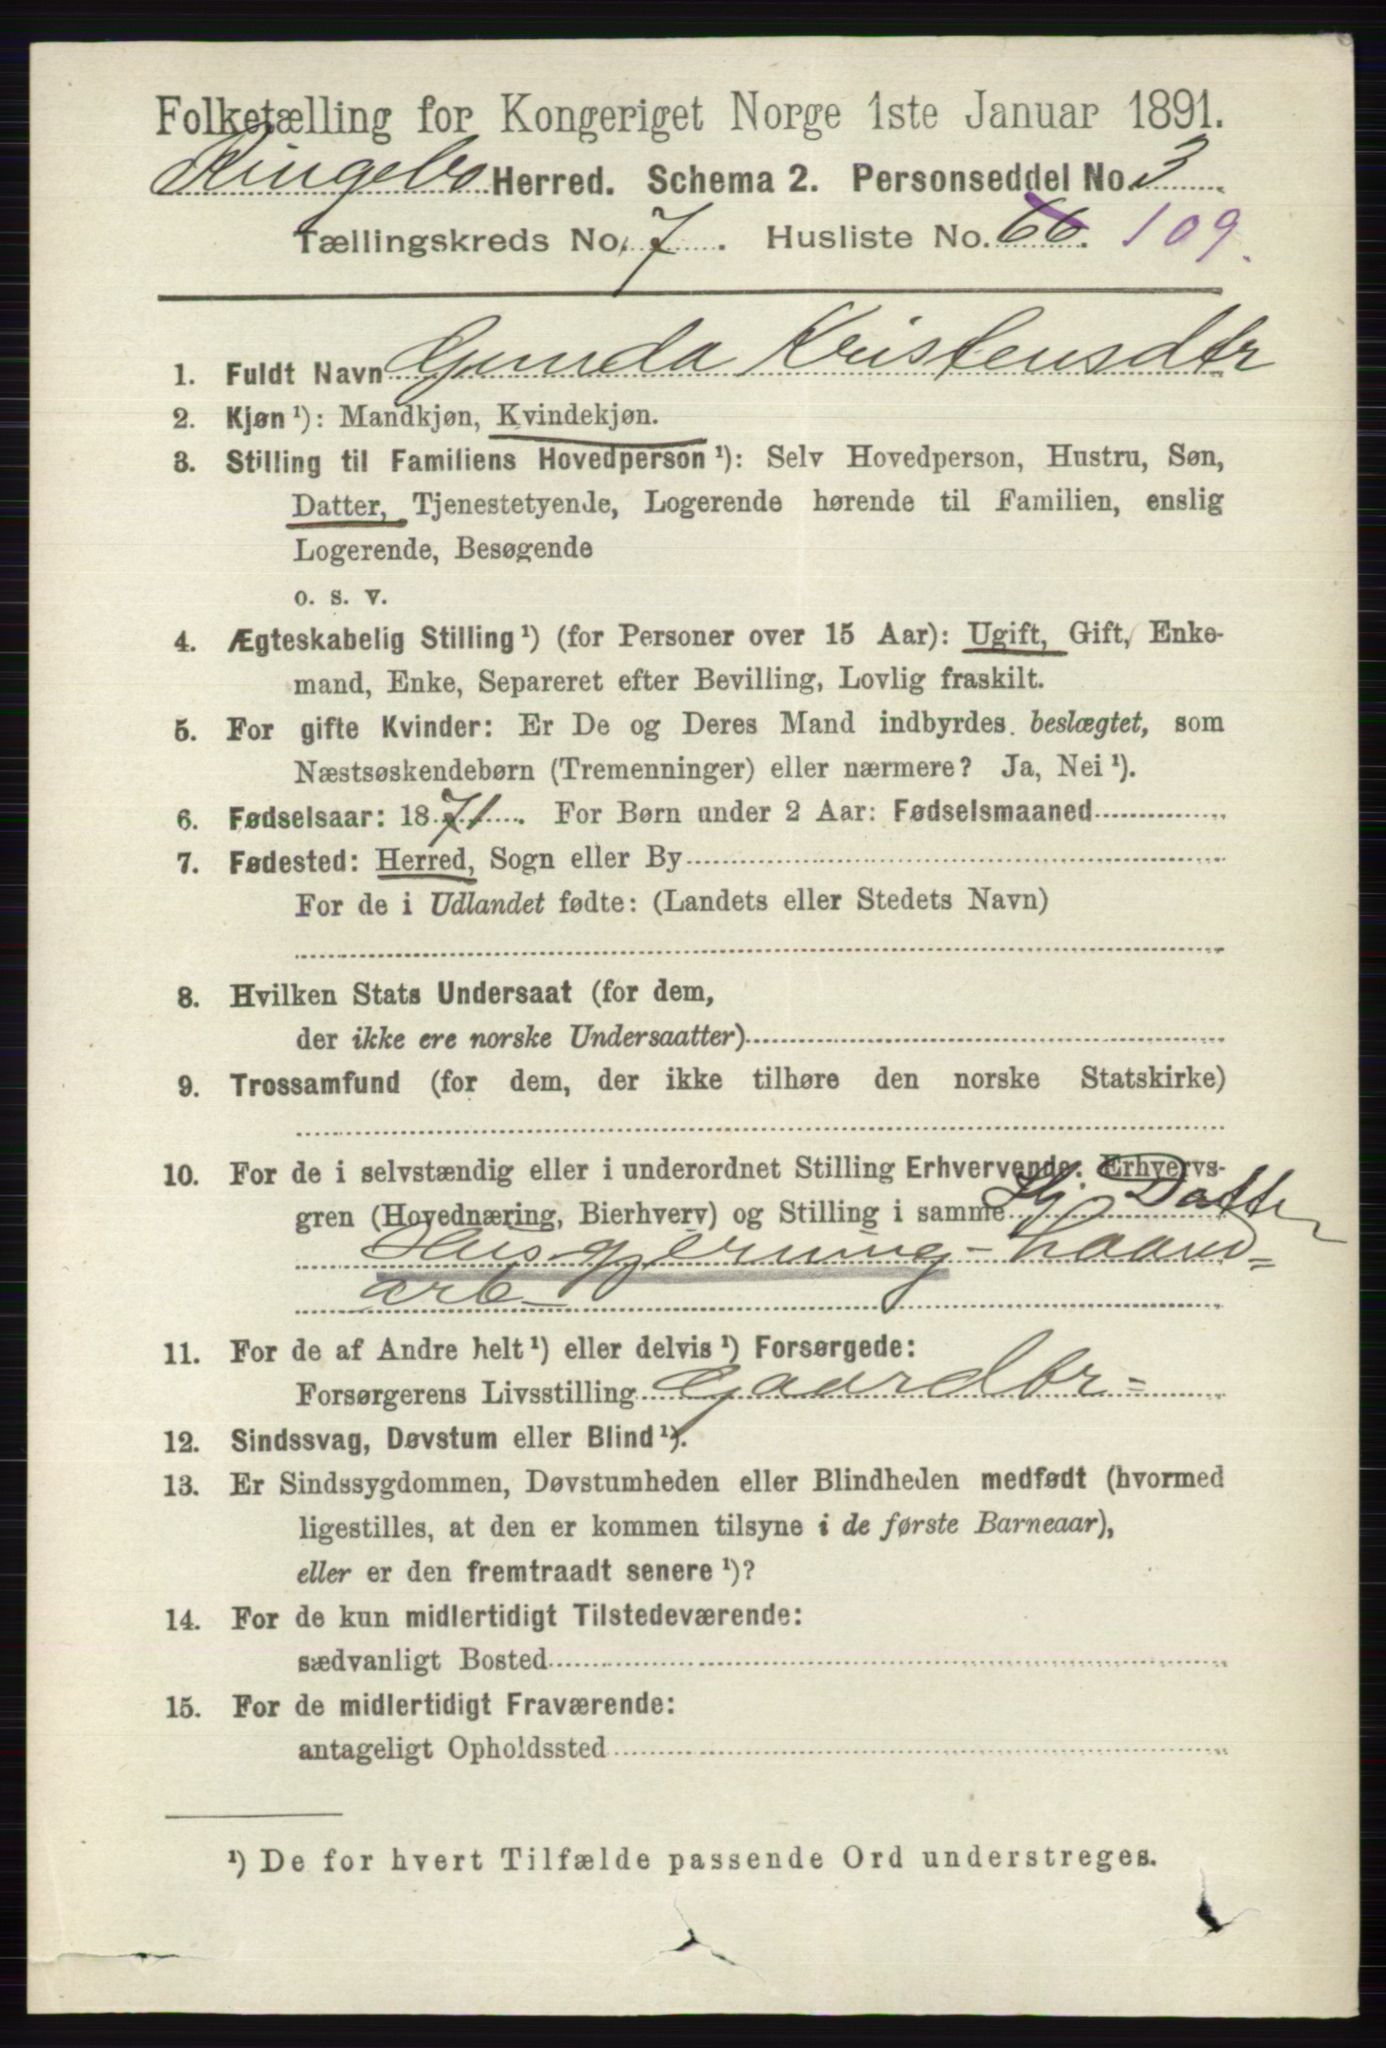 Folketælling for Kongeriget Norge 1ste Januar 1891.
Ringebo Herred. Schema 2. Personseddel No. 3
Tællingskreds No. 7. Husliste No. 66. 109.
1. Fuldt Navn Gunda Kristensdtr
2. Kjøn ¹): Mandkjøn, Kvindekjøn.
3. Stilling til Familiens Hovedperson ¹): Selv Hovedperson, Hustru, Søn,
Datter, Tjenestetyende, Logerende hørende til Familien, enslig
Logerende, Besøgende
o. s. v.
4. Ægteskabelig Stilling ¹) (for Personer over 15 Aar): Ugift, Gift, Enke-
mand, Enke, Separeret efter Bevilling, Lovlig fraskilt.
5. For gifte Kvinder: Er De og Deres Mand indbyrdes beslægtet, som
Næstsøskendebørn (Tremenninger) eller nærmere? Ja, Nei ¹).
6. Fødselsaar: 1871. For Børn under 2 Aar: Fødselsmaaned
7. Fødested: Herred, Sogn eller By
For de i Udlandet fødte: (Landets eller Stedets Navn)
8. Hvilken Stats Undersaat (for dem,
der ikke ere norske Undersaatter)
9. Trossamfund (for dem, der ikke tilhøre den norske Statskirke)
10. For de i selvstændig eller i underordnet Stilling Erhvervende: Erhvervs-
gren (Hovednæring, Bierhverv) og Stilling i samme Hj. Datter
Husgjerning- Haand=
arb-
11. For de af Andre helt ¹) eller delvis ¹) Forsørgede:
Forsørgerens Livsstilling Gaardbr-
12. Sindssvag, Døvstum eller Blind ¹).
13. Er Sindssygdommen, Døvstumheden eller Blindheden medfødt (hvormed
ligestilles, at den er kommen tilsyne i de første Barneaar),
eller er den fremtraadt senere ¹)?
14. For de kun midlertidigt Tilstedeværende:
sædvanligt Bosted
15. For de midlertidigt Fraværende:
antageligt Opholdssted
¹) De for hvert Tilfælde passende Ord understreges.